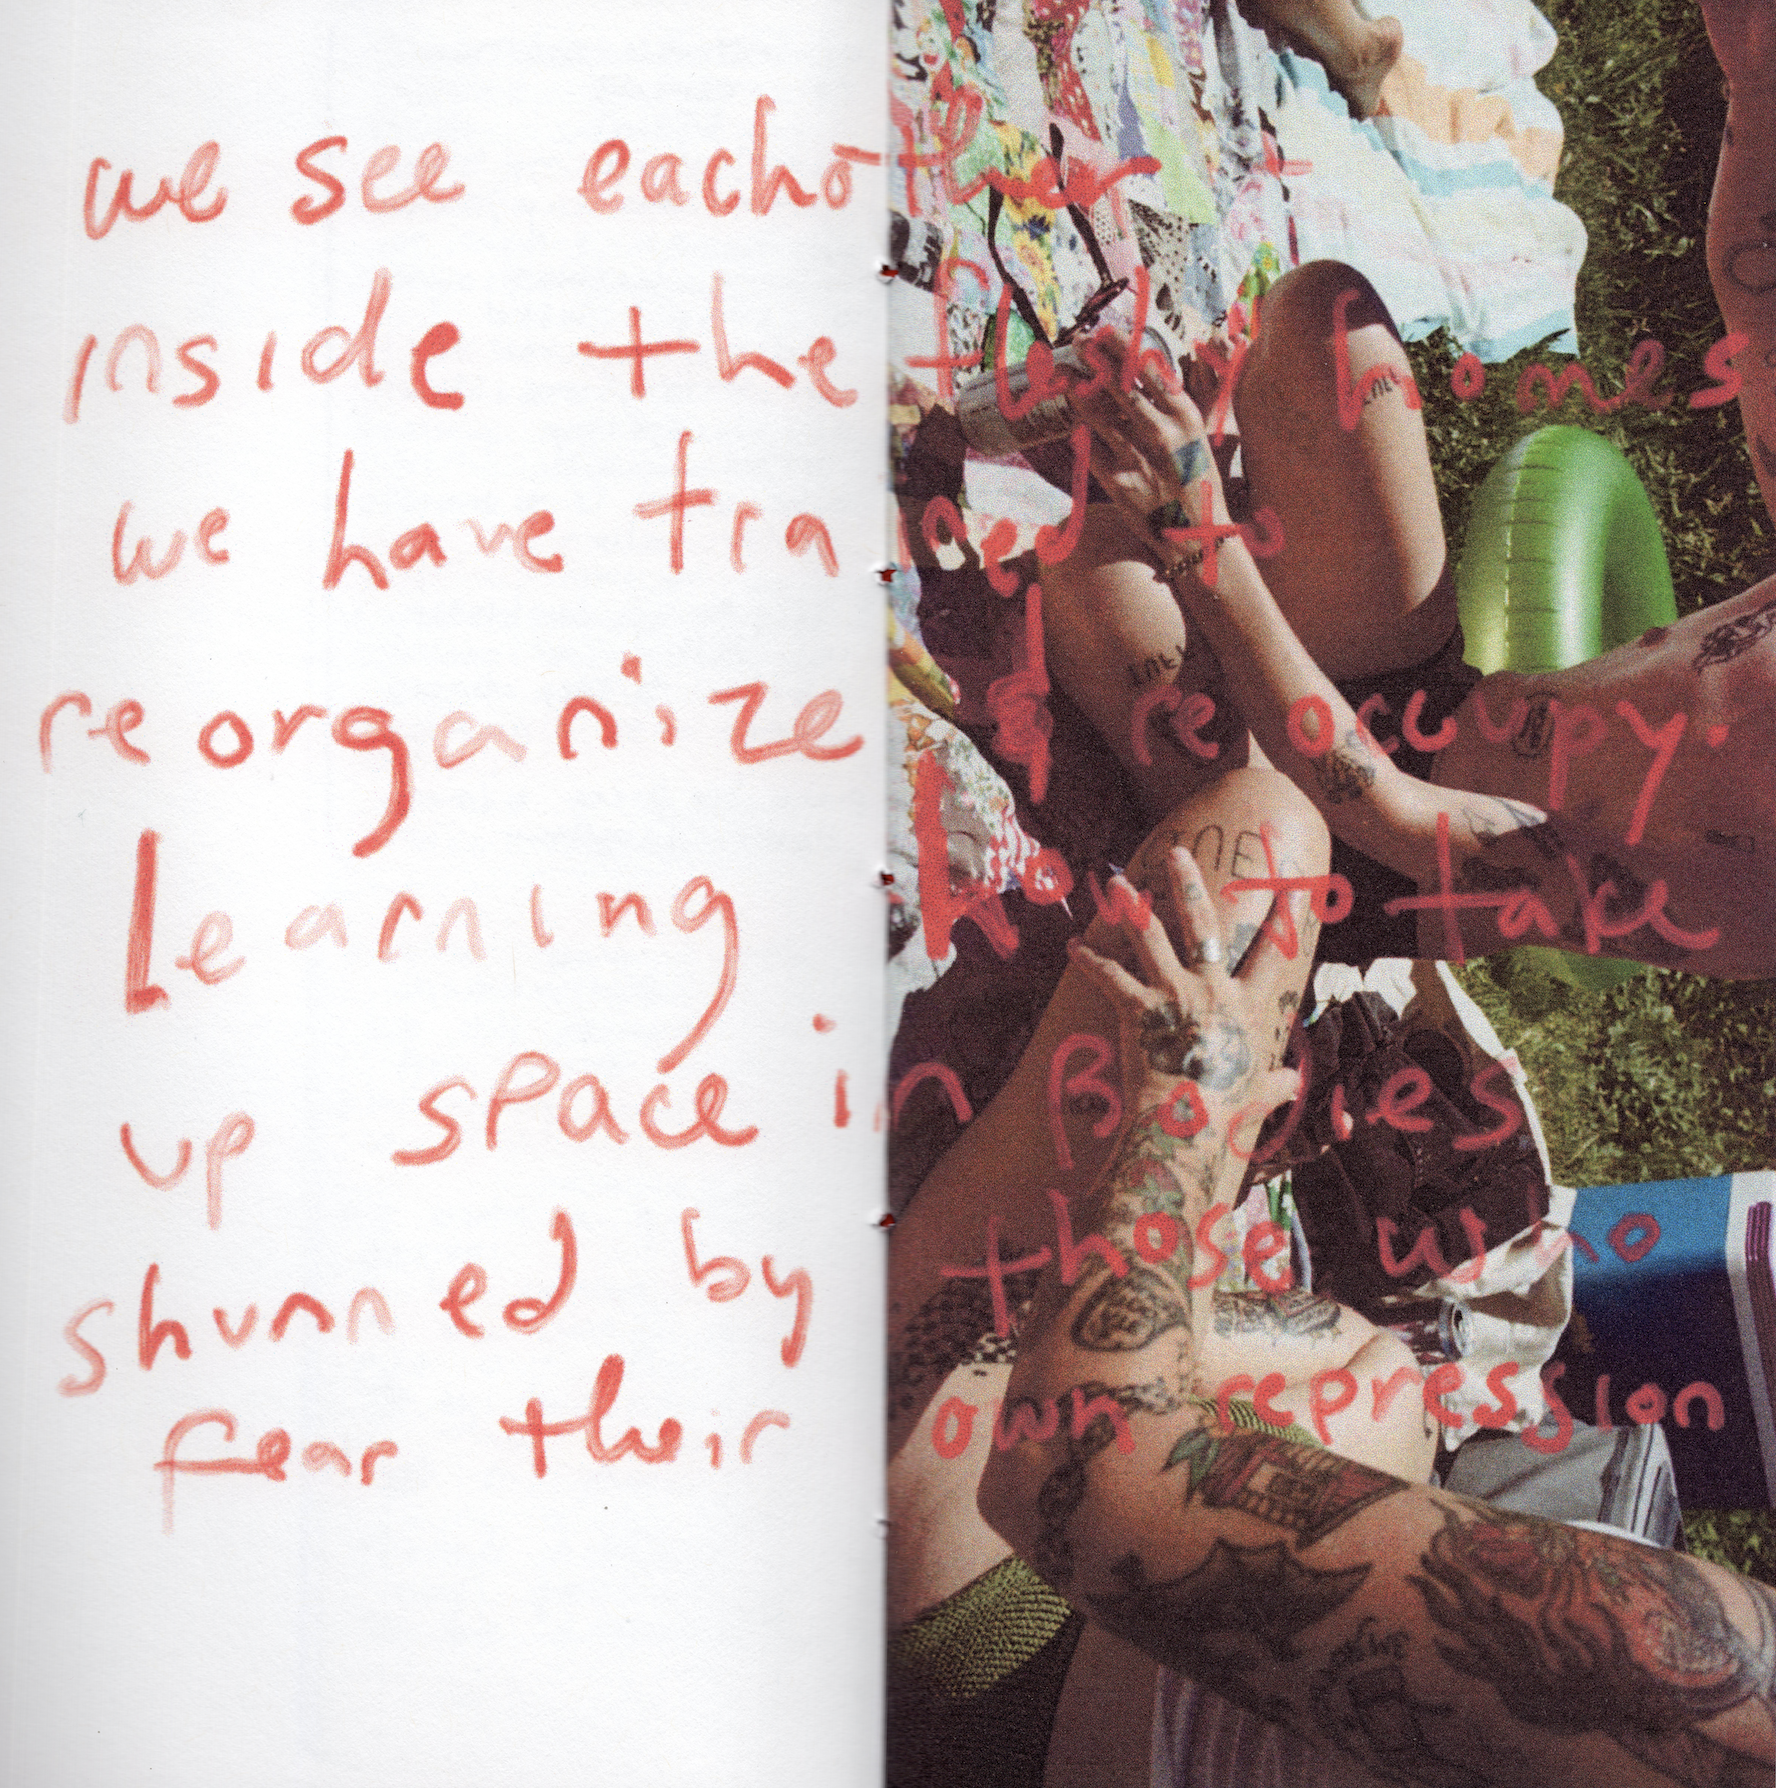 we see eachother +
inside the fleshy homes
we have trained to
reorganize & reoccupy.
Learning how to take
up space in Bodies
shunned by those who
fear their own repression